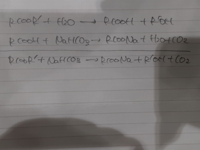 RCOOR' + H2O → RCOOH + R'OH
RCOOH + NaHCO3 → RCOONa + H2O + CO2
RCOOR' + NaHCO3 → RCOONa + R'OH + CO2